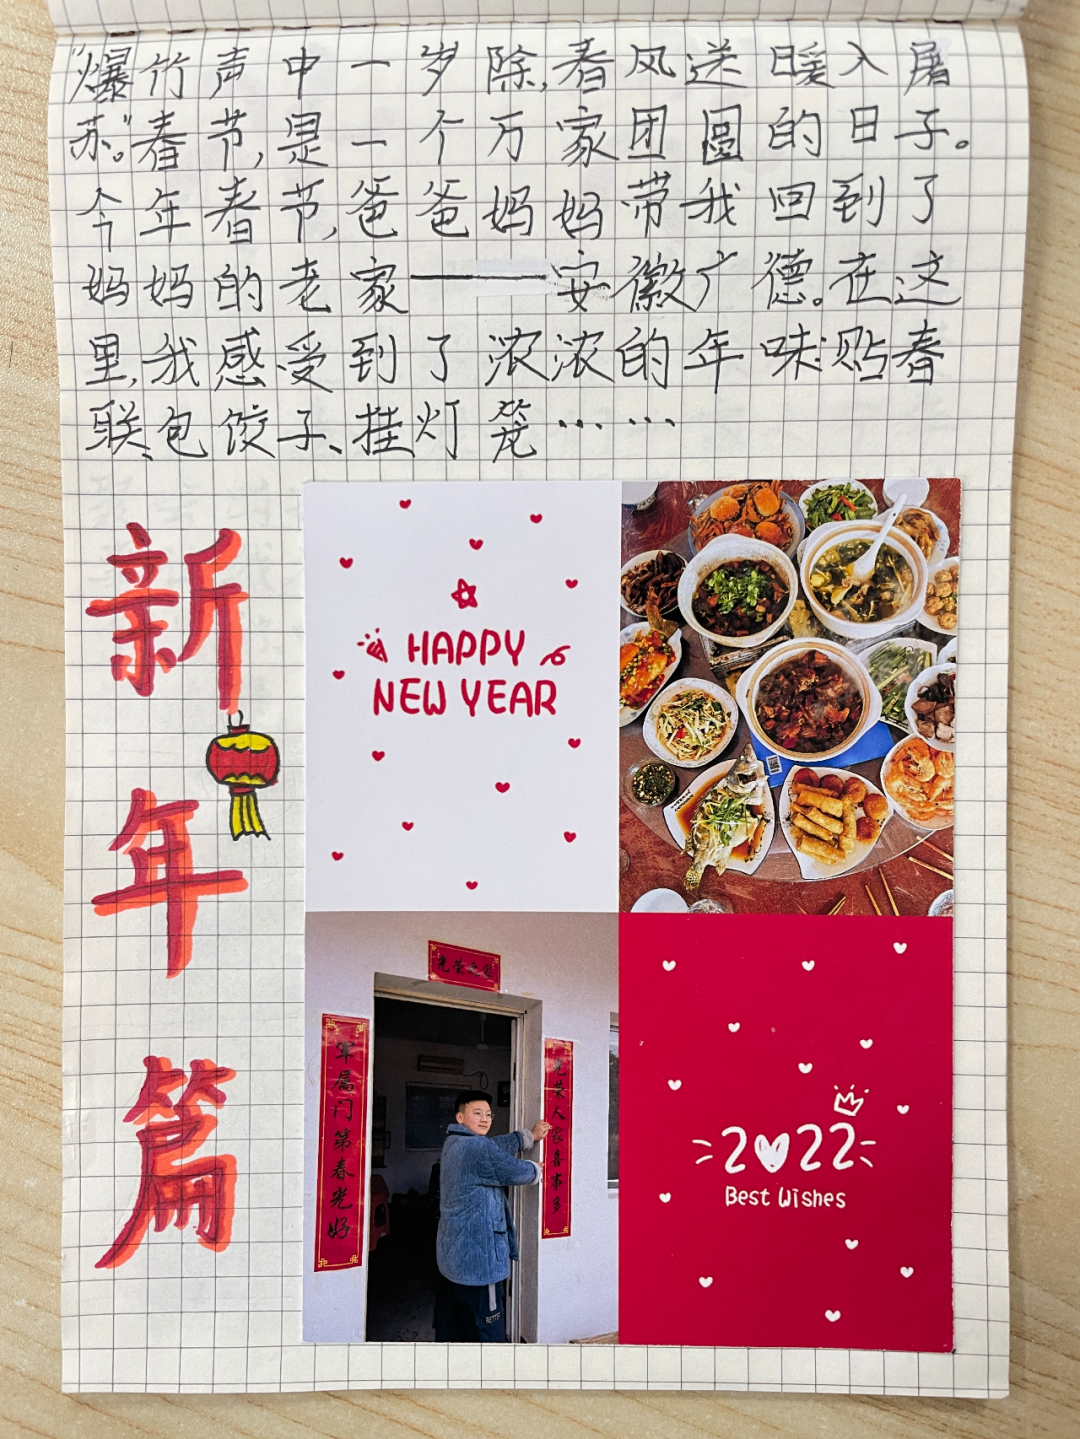 “爆竹声中一岁除,春风送暖入屠
苏。”春节,是一个万家团圆的日子。
今年春节,爸爸妈妈带我回到了
妈妈的老家——安徽广德。在这
里,我感受到了浓浓的年味:贴春
联、包饺子、挂灯笼……
新年篇
HAPPY
NEW YEAR
光荣之家
军属门第春光好
光荣人家喜事多
2022
Best Wishes